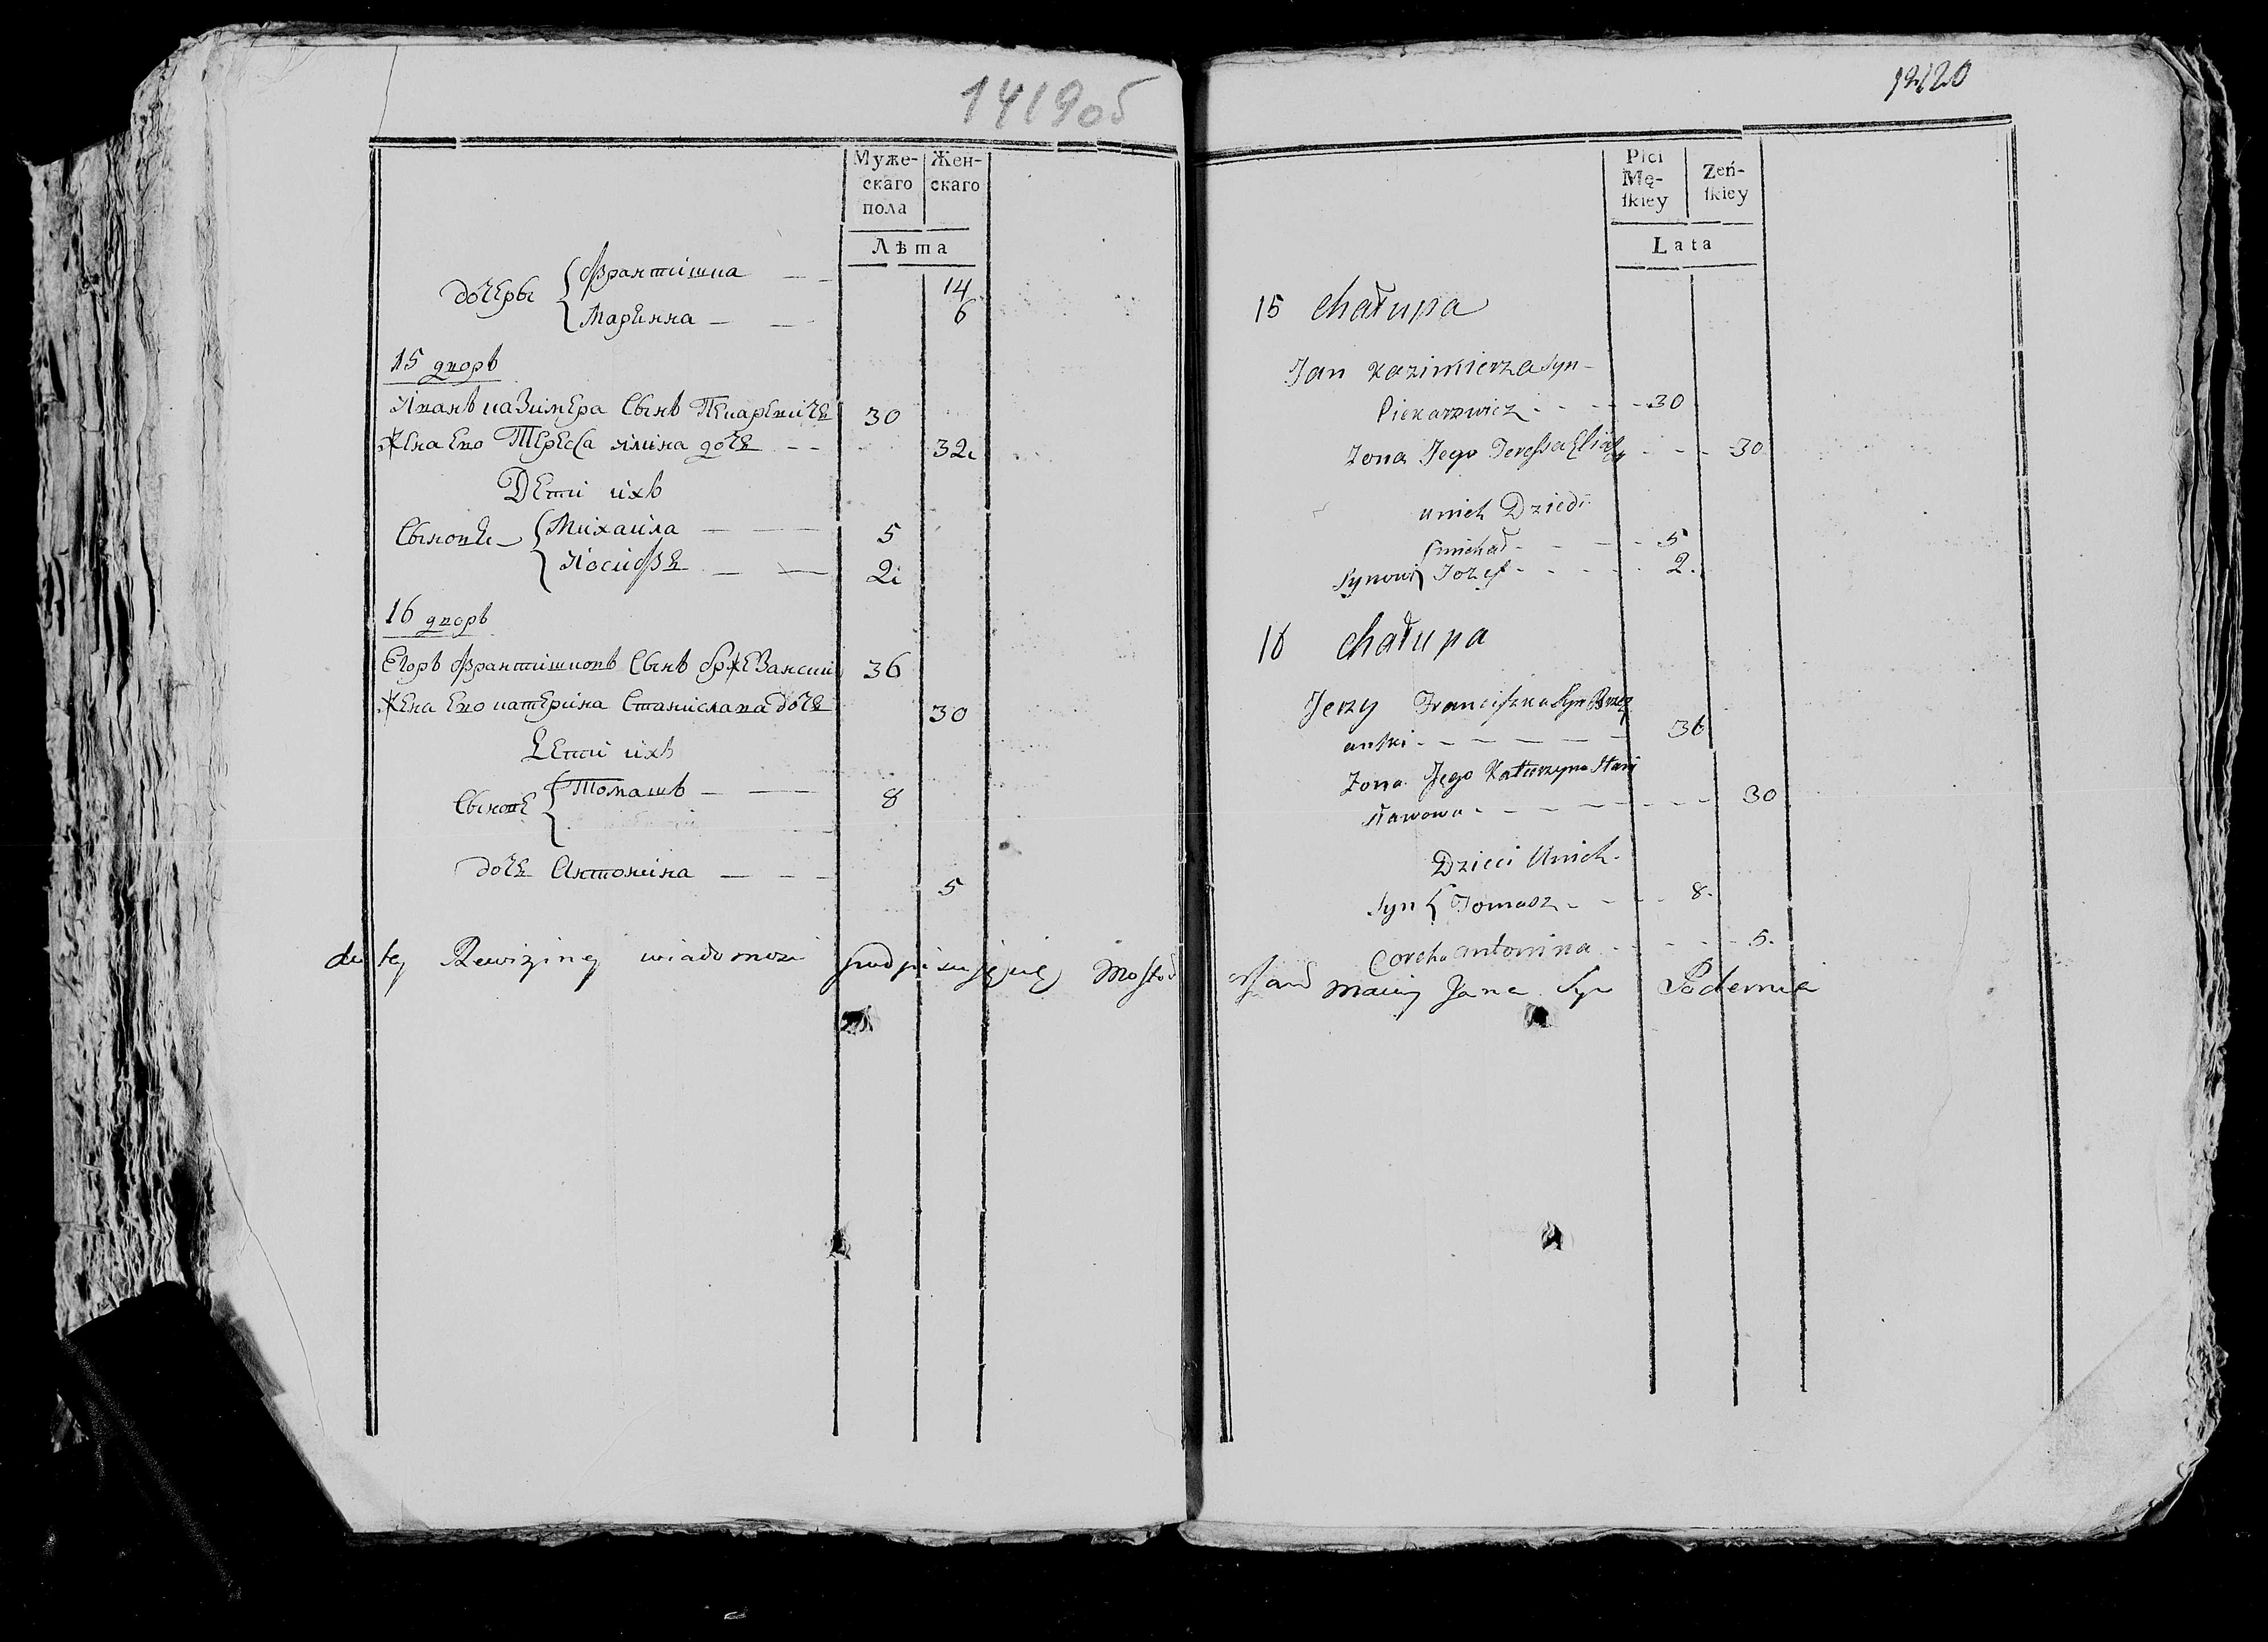 1419об
Муже-
скаго
пола
Жен-
скаго
Лѣта
дочеры
Франтишка — 14
Маріанна — — 6
15 дворъ
Иванъ казимера Сынъ Пекаревичь 30
Жена Ево Тересса илина дочь — — 32
Дети ихъ
Сыновья
Михаила — — 5
Иосифь — — 2
16 дворъ
Егоръ Франтишковъ Сынъ бржезански 36
Жена Ево катерина Станислава дочь 30
Дети ихъ
Сынове
Томашъ — — 8
дочь Антонина — — — 5
do tey Rewizyiney wiadomosci podpisuję się
1420
Płci
Mę-
ſkiey
Żeń-
ſkiey
Lata
15 chałupa
Jan Kazimierza syn
Piekarzwicz - - - - 30
Zona Jego Teressa - - - 30
unich Dzieci
Synowi
michał - - - - 5
Jozef - - - - 2.
16 chałupa
Jerzy Franciszka Syn Brzez
anski - - - - - - 36
Zona Jego Katarzyna Stani
sławowa - - - - - - - 30
Dzieci Unich.
Syn { Tomasz - - - - 8.
Corcha antonina - - - - - 5.
maciey Jana Syn